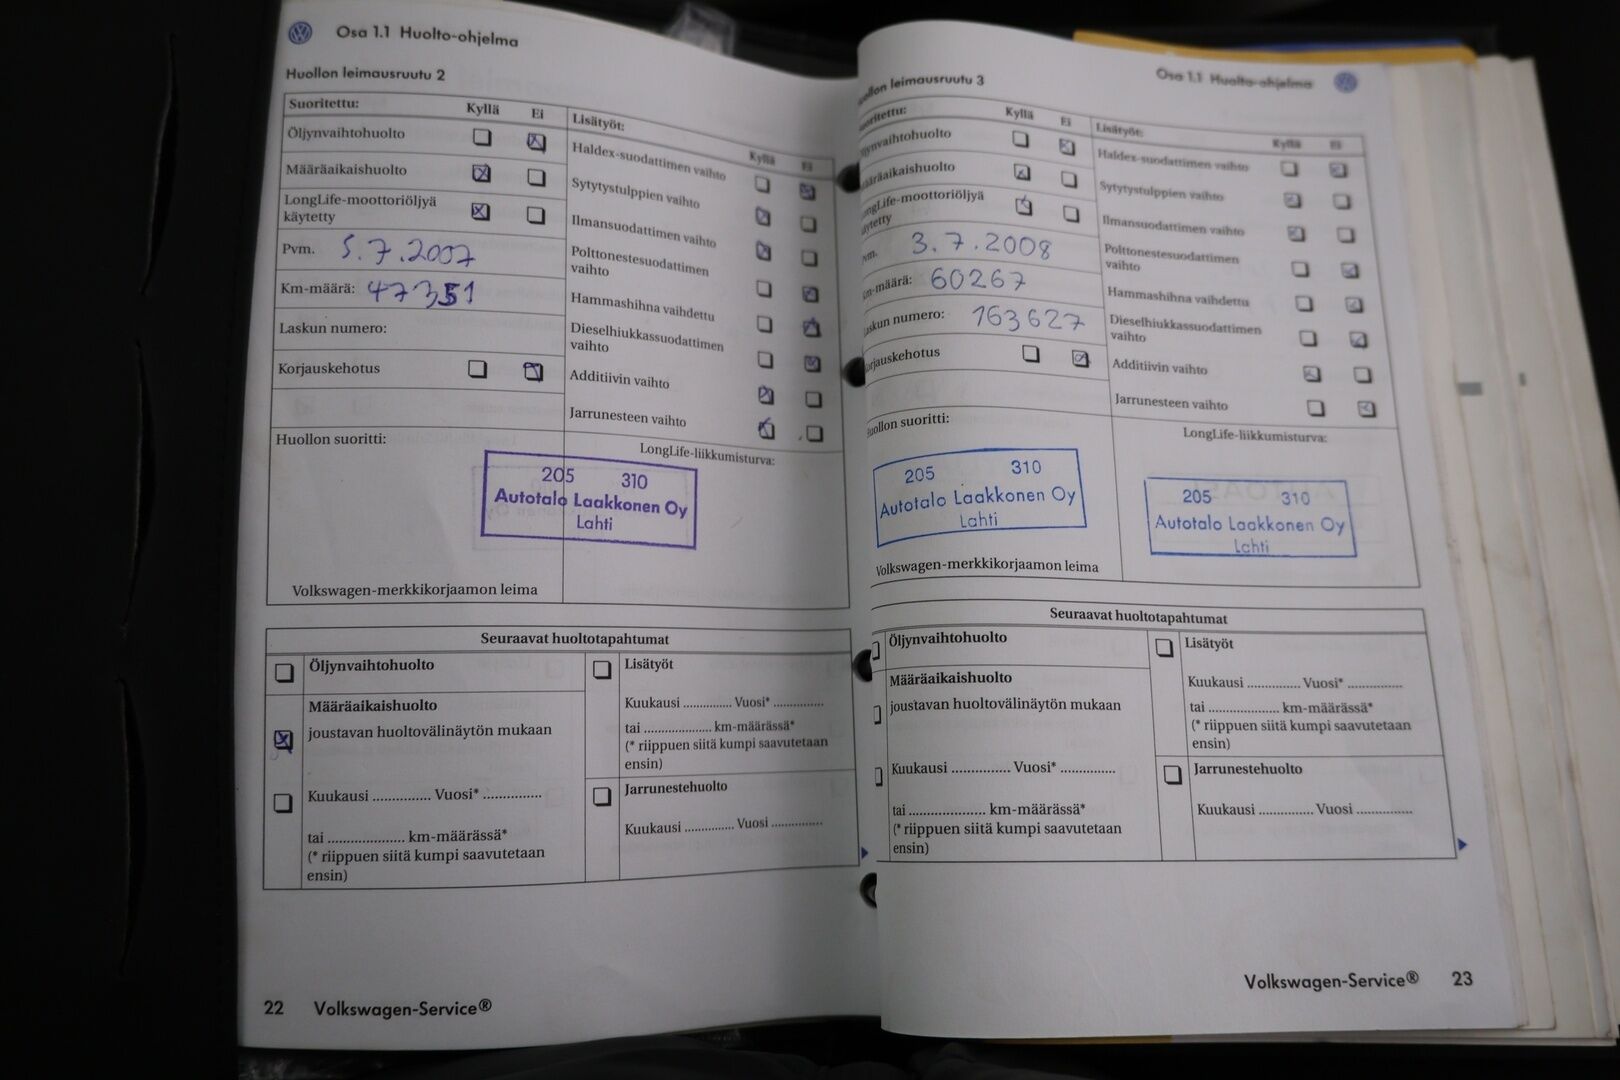 Osa 1.1 Huolto-ohjelma
Huollon leimausruutu 2
Suoritettu: Kyllä Ei
Öljynvaihtohuolto
Määräaikaishuolto
LongLife-moottoriöljyä
käytetty
Pvm. 5.7.2007
Km-määrä: 47351
Laskun numero:
Korjauskehotus
Lisätyöt: Kyllä Ei
Haldex-suodattimen vaihto
Sytytystulppien vaihto
Ilmansuodattimen vaihto
Polttonestesuodattimen
vaihto
Hammashihna vaihdettu
Dieselhiukkassuodattimen
vaihto
Additiivin vaihto
Jarrunesteen vaihto
Huollon suoritti:
LongLife-liikkumisturva:
205 310
Autotalo Laakkonen Oy
Lahti
Volkswagen-merkkikorjaamon leima
Seuraavat huoltotapahtumat
Öljynvaihtohuolto
Määräaikaishuolto
joustavan huoltovälinäytön mukaan
Kuukausi .............. Vuosi* ..............
tai .................... km-määrässä*
(* riippuen siitä kumpi saavutetaan
ensin)
Lisätyöt
Kuukausi ............ Vuosi* ............
tai ................. km-määrässä*
(* riippuen siitä kumpi saavutetaan
ensin)
Jarrunestehuolto
Kuukausi ............ Vuosi ............
22 Volkswagen-Service®
Osa 1.1 Huolto-ohjelma
ollon leimausruutu 3
oritettu: Kyllä Ei
jynvaihtohuolto
äräaikaishuolto
ngLife-moottoriöljyä
ytetty
vm. 3.7.2008
m-määrä: 60267
askun numero: 163627
orjauskehotus
Lisätyöt: Kyllä Ei
Haldex-suodattimen vaihto
Sytytystulppien vaihto
Ilmansuodattimen vaihto
Polttonestesuodattimen
vaihto
Hammashihna vaihdettu
Dieselhiukkassuodattimen
vaihto
Additiivin vaihto
Jarrunesteen vaihto
uollon suoritti:
LongLife-liikkumisturva:
205 310
Autotalo Laakkonen Oy
Lahti
205 310
Autotalo Laakkonen Oy
Lahti
Volkswagen-merkkikorjaamon leima
Seuraavat huoltotapahtumat
Öljynvaihtohuolto
Määräaikaishuolto
joustavan huoltovälinäytön mukaan
Kuukausi .............. Vuosi* .............
tai .................... km-määrässä*
(* riippuen siitä kumpi saavutetaan
ensin)
Lisätyöt
Kuukausi ............. Vuosi* .............
tai .................. km-määrässä*
(* riippuen siitä kumpi saavutetaan
ensin)
Jarrunestehuolto
Kuukausi ............. Vuosi .............
Volkswagen-Service® 23